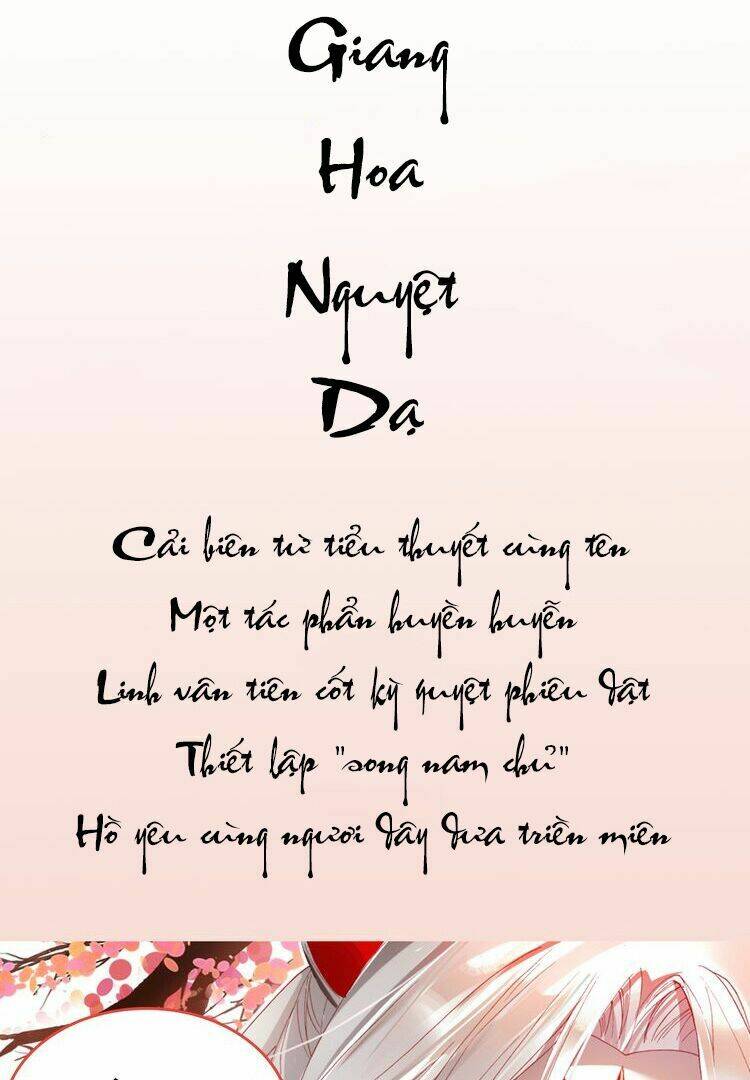 Giang
Hoa
Nguyệt
Dạ
Cải biên từ tiểu thuyết cùng tên
Một tác phẩn huyền huyễn
Linh vân tiên cốt kỳ quyệt phiêu dật
Thiết lập "song nam chủ"
Hồ yêu cùng ngươi dây dưa triền miên